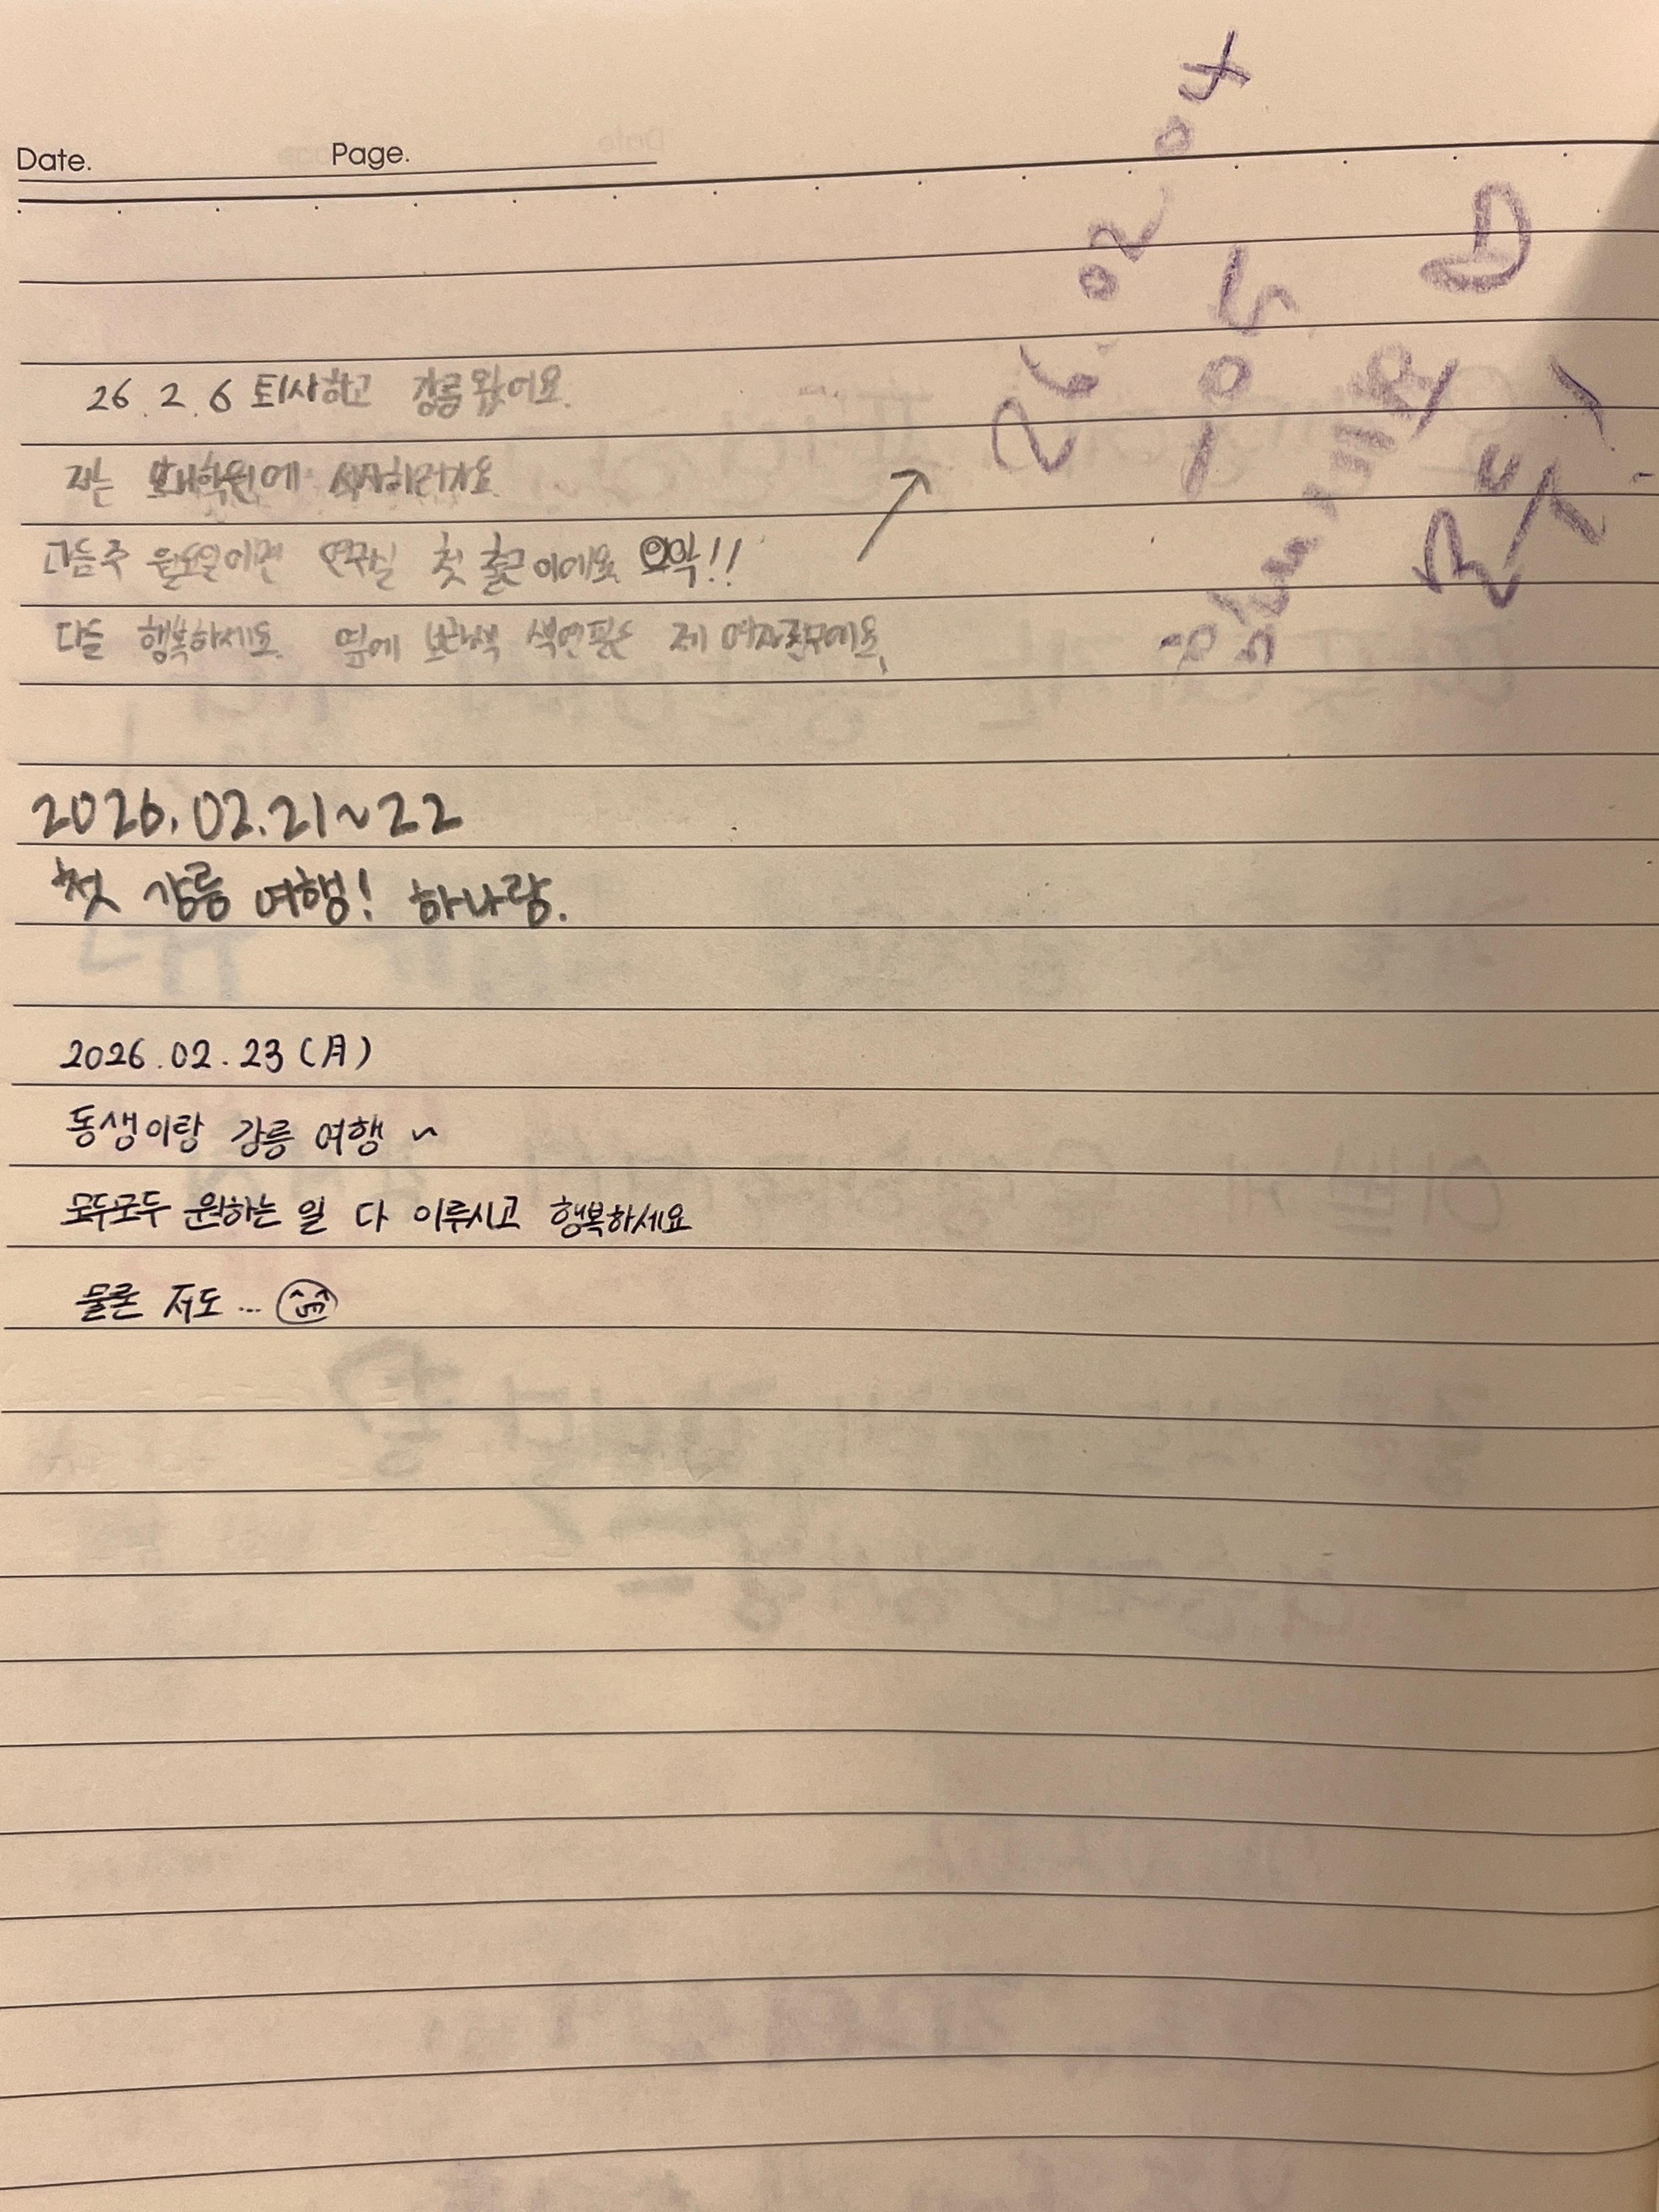 Date. Page.
26. 2. 6 퇴사하고 강릉 왔어요.
저는 대학원에
다음주 월요일이면 연구실 첫 출근이에요 으악!!
다들 행복하세요. 옆에 보라색 색연필은 제 여자친구에요.
26. 02. 07
2026. 02. 21 ~ 22
첫 강릉 여행! 하나랑.
2026. 02. 23 (月)
동생이랑 강릉 여행 ~
모두모두 원하는 일 다 이루시고 행복하세요
물론 저도 ...